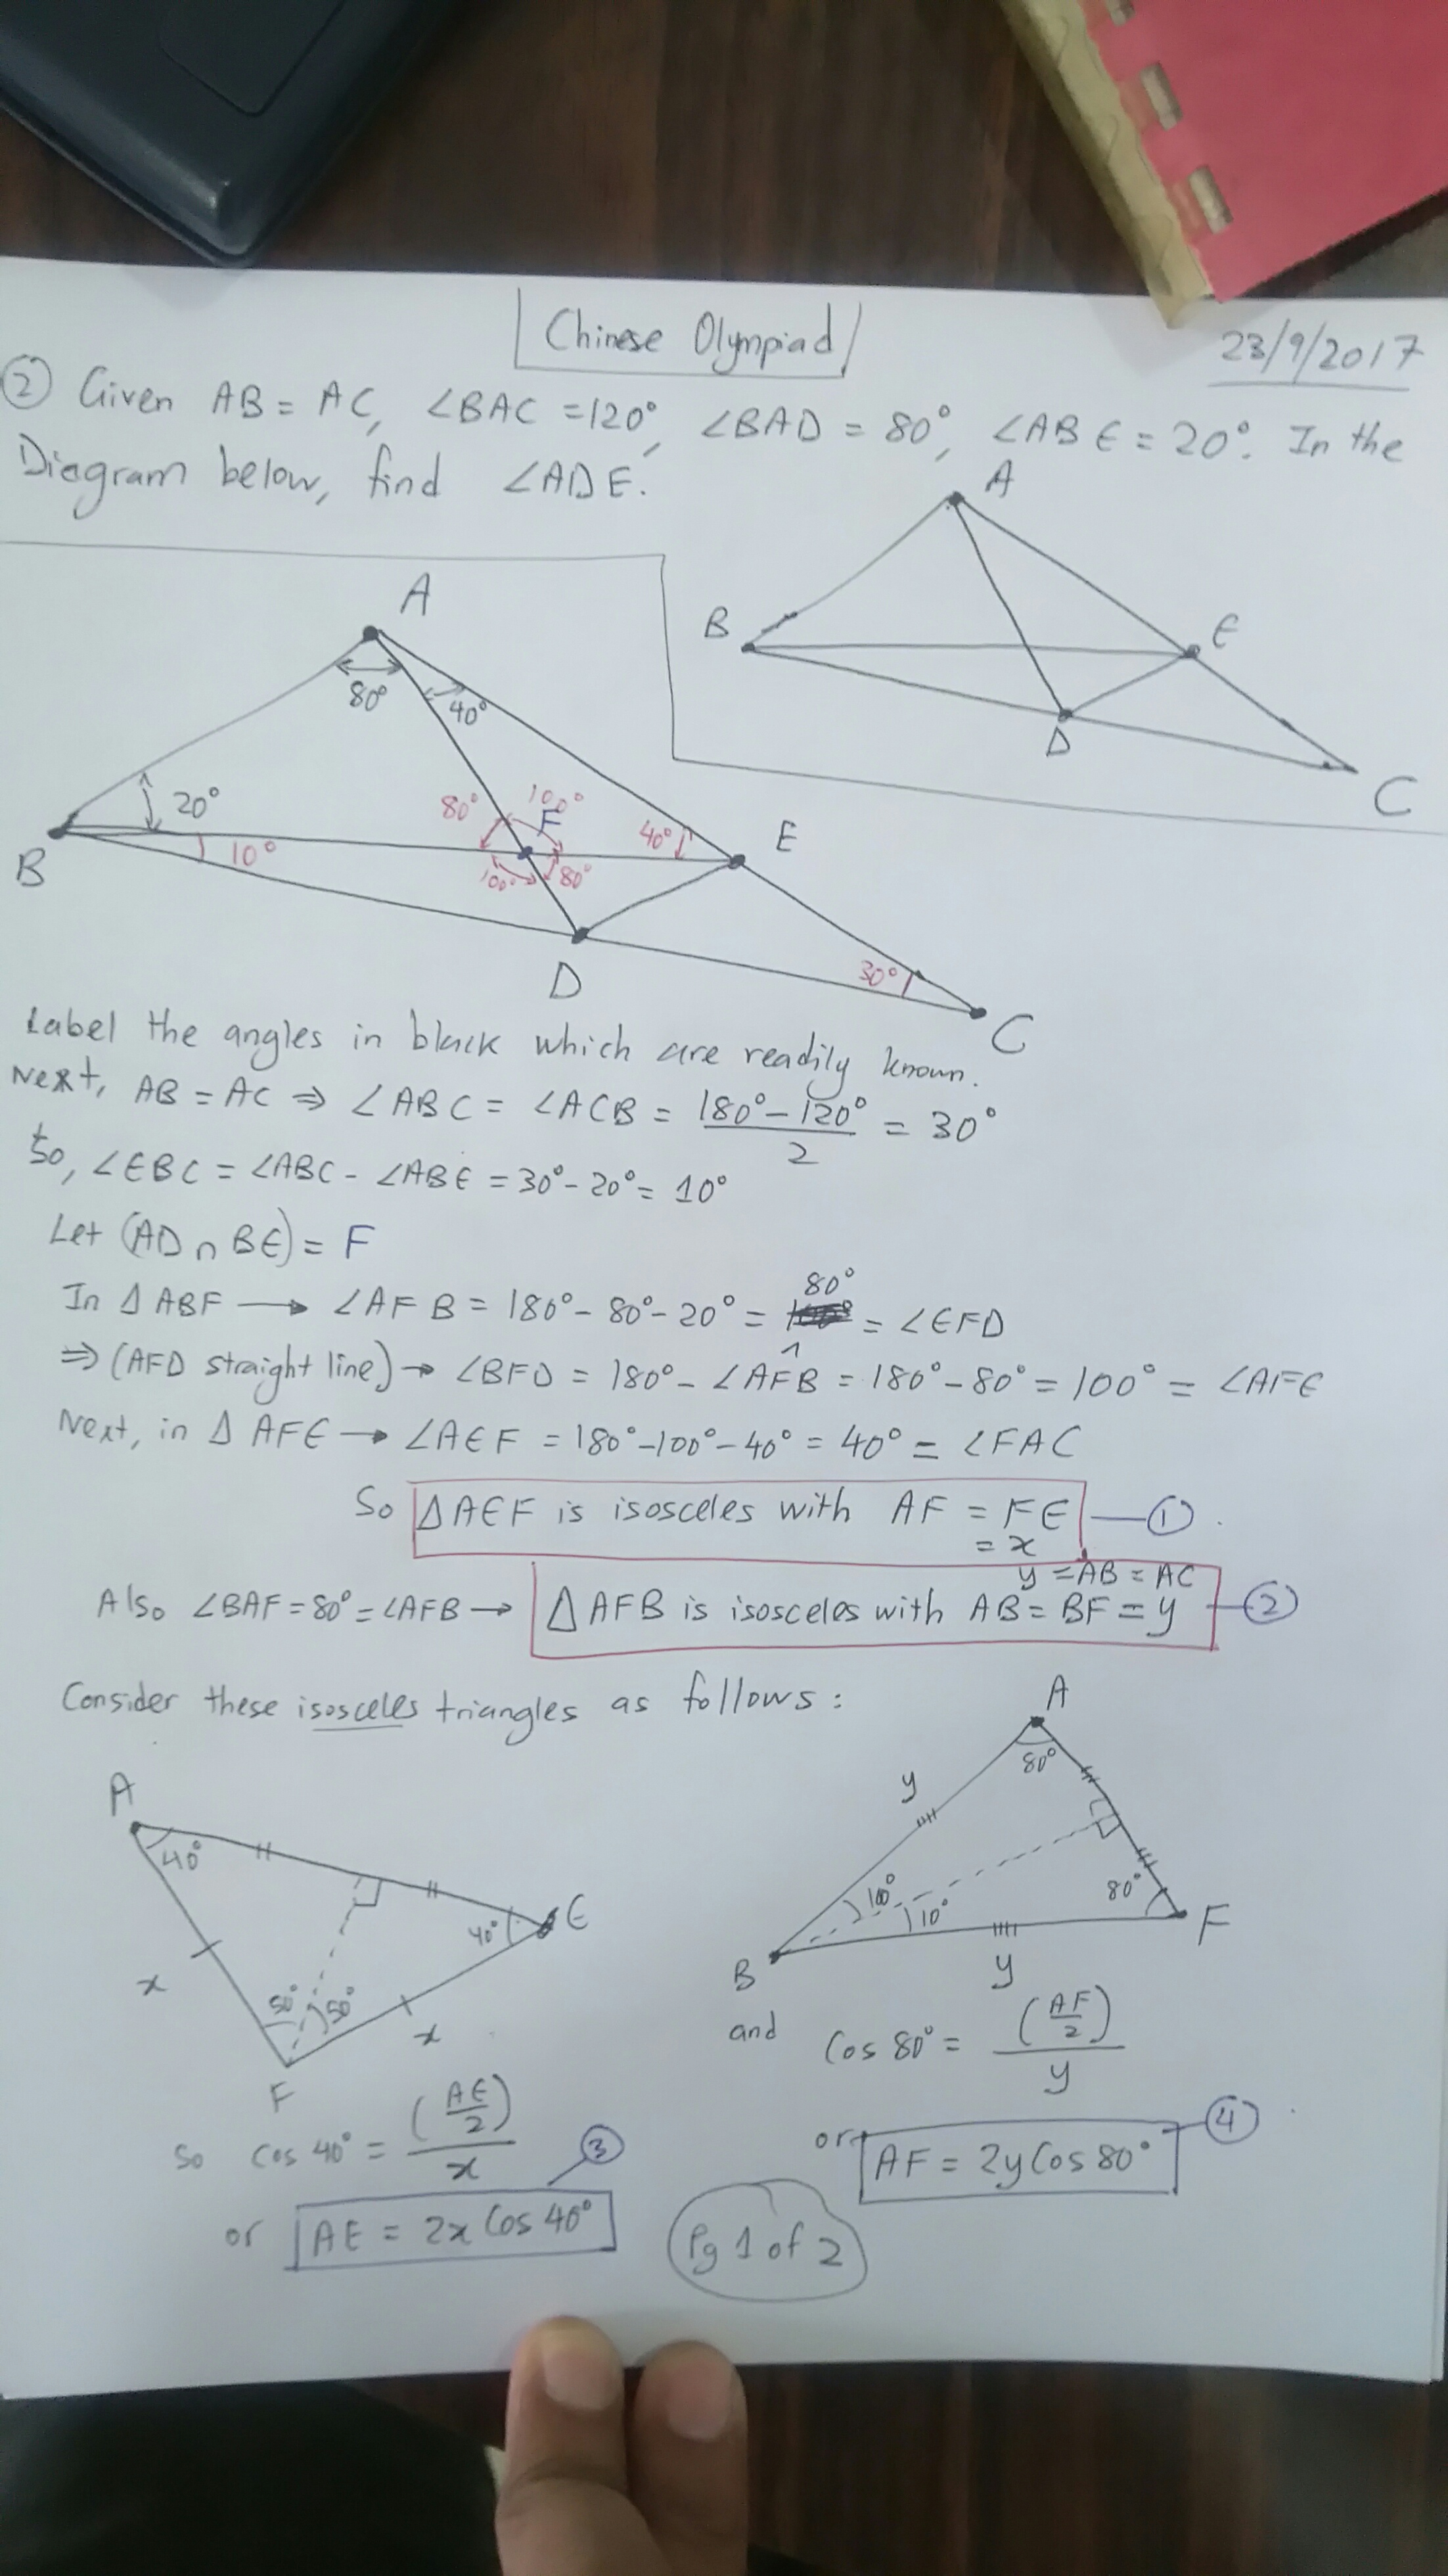 Chinese Olympiad
23/9/2017
② Given AB = AC, ∠BAC = 120°, ∠BAD = 80°, ∠ABE = 20°. In the
Diagram below, find ∠ADE.
A
B
E
D
C
A
80°
40°
20°
80°
100°
F
40°
E
B
10°
100°
80°
D
30°
C
Label the angles in black which are readily known.
Next, AB = AC ⇒ ∠ABC = ∠ACB = (180° - 120°)/2 = 30°
So, ∠EBC = ∠ABC - ∠ABE = 30° - 20° = 10°
Let (AD ∩ BE) = F
In Δ ABF → ∠AFB = 180° - 80° - 20° = 80° = ∠EFD
⇒ (AFD straight line) → ∠BFD = 180° - ∠AFB = 180° - 80° = 100° = ∠AFE
Next, in Δ AFE → ∠AEF = 180° - 100° - 40° = 40° = ∠FAC
So ΔAEF is isosceles with AF = FE ①
= x
y = AB = AC
Also ∠BAF = 80° = ∠AFB → ΔAFB is isosceles with AB = BF = y ②
Consider these isosceles triangles as follows:
A
40°
40°
E
x
50°
50°
x
F
A
80°
y
10°
10°
80°
F
B
y
So cos 40° = (AE/2)/x
③
or AE = 2x Cos 40°
and Cos 80° = (AF/2)/y
or AF = 2y Cos 80° ④
Pg 1 of 2